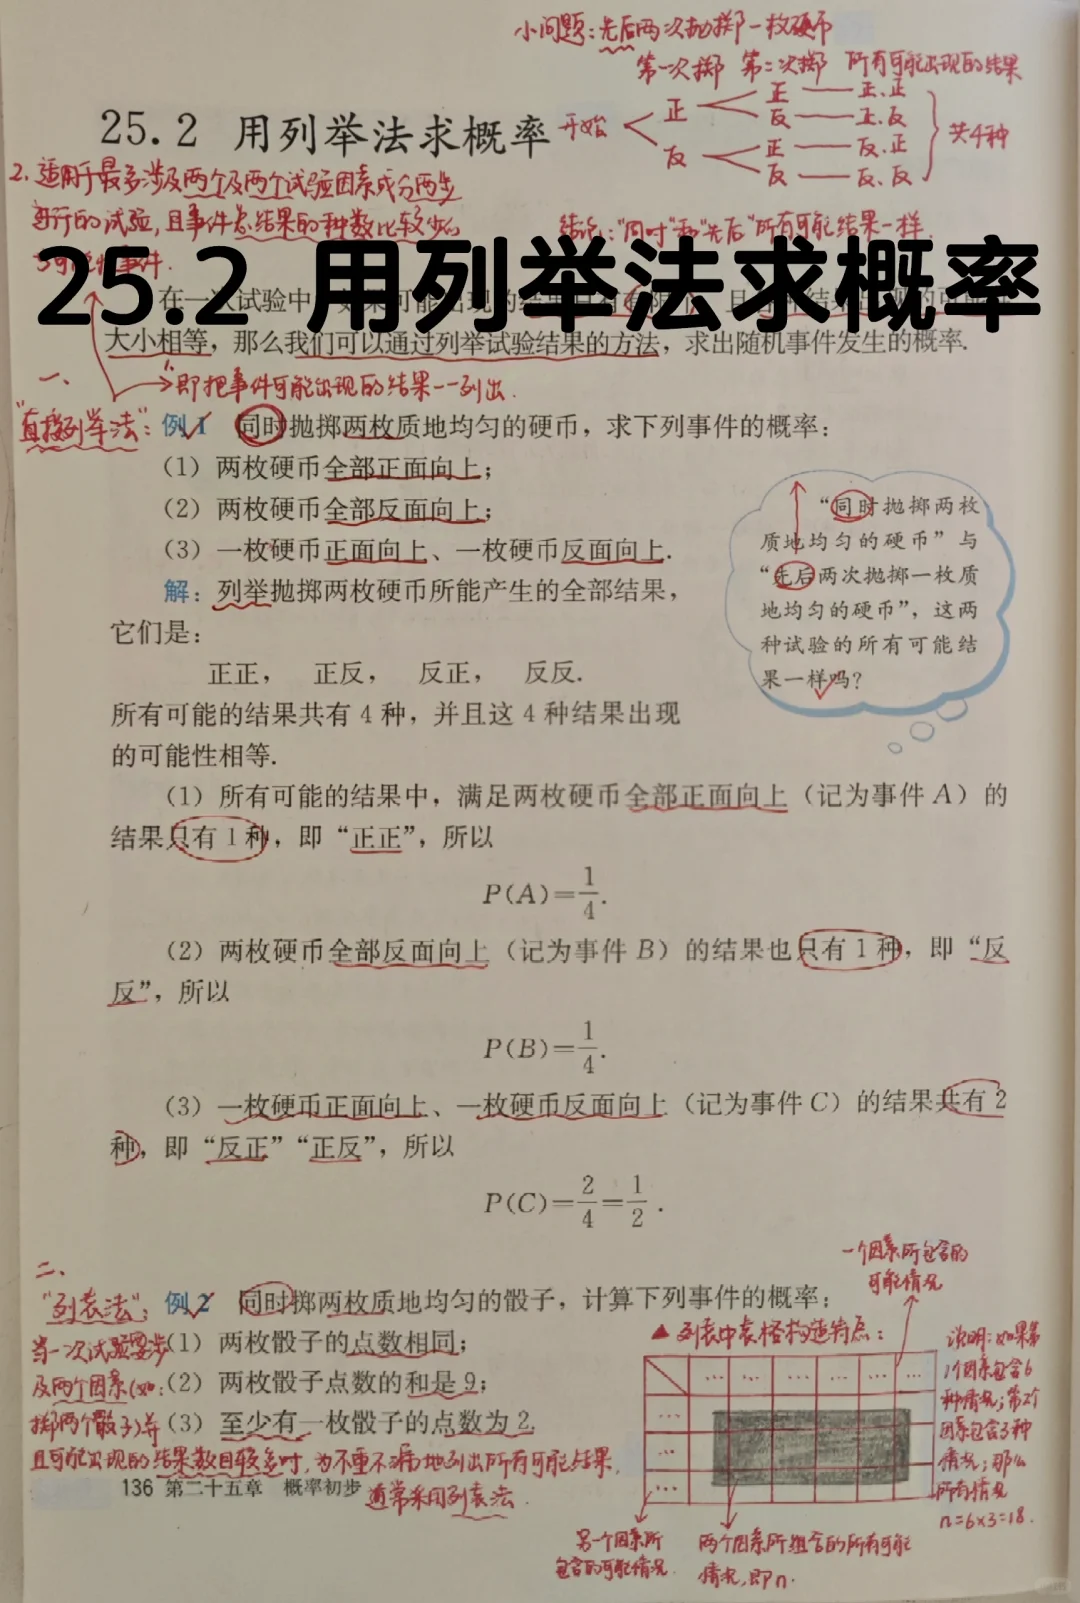 小问题:先后两次抛掷一枚硬币
第一次掷 第二次掷 所有可能出现的结果
25.2 用列举法求概率
开始
正 正 正、正
反 正、反
反 正 反、正
反 反、反
共4种
2.适用于最多涉及两个及两个试验因素或分两步
进行的试验,且事件总结果的种数比较少的
等可能性事件.
结论:"同时"和"先后"所有可能结果一样.
25.2 用列举法求概率
在一次试验中
大小相等,那么我们可以通过列举试验结果的方法,求出随机事件发生的概率.
即把事件可能出现的结果一一列出.
一、
"直接列举法":
例1 同时抛掷两枚质地均匀的硬币,求下列事件的概率:
(1)两枚硬币全部正面向上;
(2)两枚硬币全部反面向上;
(3)一枚硬币正面向上、一枚硬币反面向上.
“同时抛掷两枚
质地均匀的硬币”与
“先后两次抛掷一枚质
地均匀的硬币”,这两
种试验的所有可能结
果一样吗?
解:列举抛掷两枚硬币所能产生的全部结果,
它们是:
正正, 正反, 反正, 反反.
所有可能的结果共有4种,并且这4种结果出现
的可能性相等.
(1)所有可能的结果中,满足两枚硬币全部正面向上(记为事件A)的
结果只有1种,即“正正”,所以
P(A)=1/4.
(2)两枚硬币全部反面向上(记为事件B)的结果也只有1种,即“反
反”,所以
P(B)=1/4.
(3)一枚硬币正面向上、一枚硬币反面向上(记为事件C)的结果共有2
种,即“反正”“正反”,所以
P(C)=2/4=1/2.
二、
"列表法":
例2 同时掷两枚质地均匀的骰子,计算下列事件的概率:
(1)两枚骰子的点数相同;
(2)两枚骰子点数的和是9;
(3)至少有一枚骰子的点数为2.
当一次试验要涉
及两个因素(如:
掷两个骰子)并
且可能出现的结果数目较多时,为不重不漏地列出所有可能结果,
通常采用列表法.
136 第二十五章 概率初步
一个因素所包含的
可能情况
▲列表中表格构造特点:
... ... ... ... ... ...
...
...
...
说明:如果第
1个因素包含6
种情况;第2个
因素包含3种
情况;那么
所有情况
n=6×3=18.
另一个因素所
包含的可能情况.
两个因素所组合的所有可能
情况,即n.